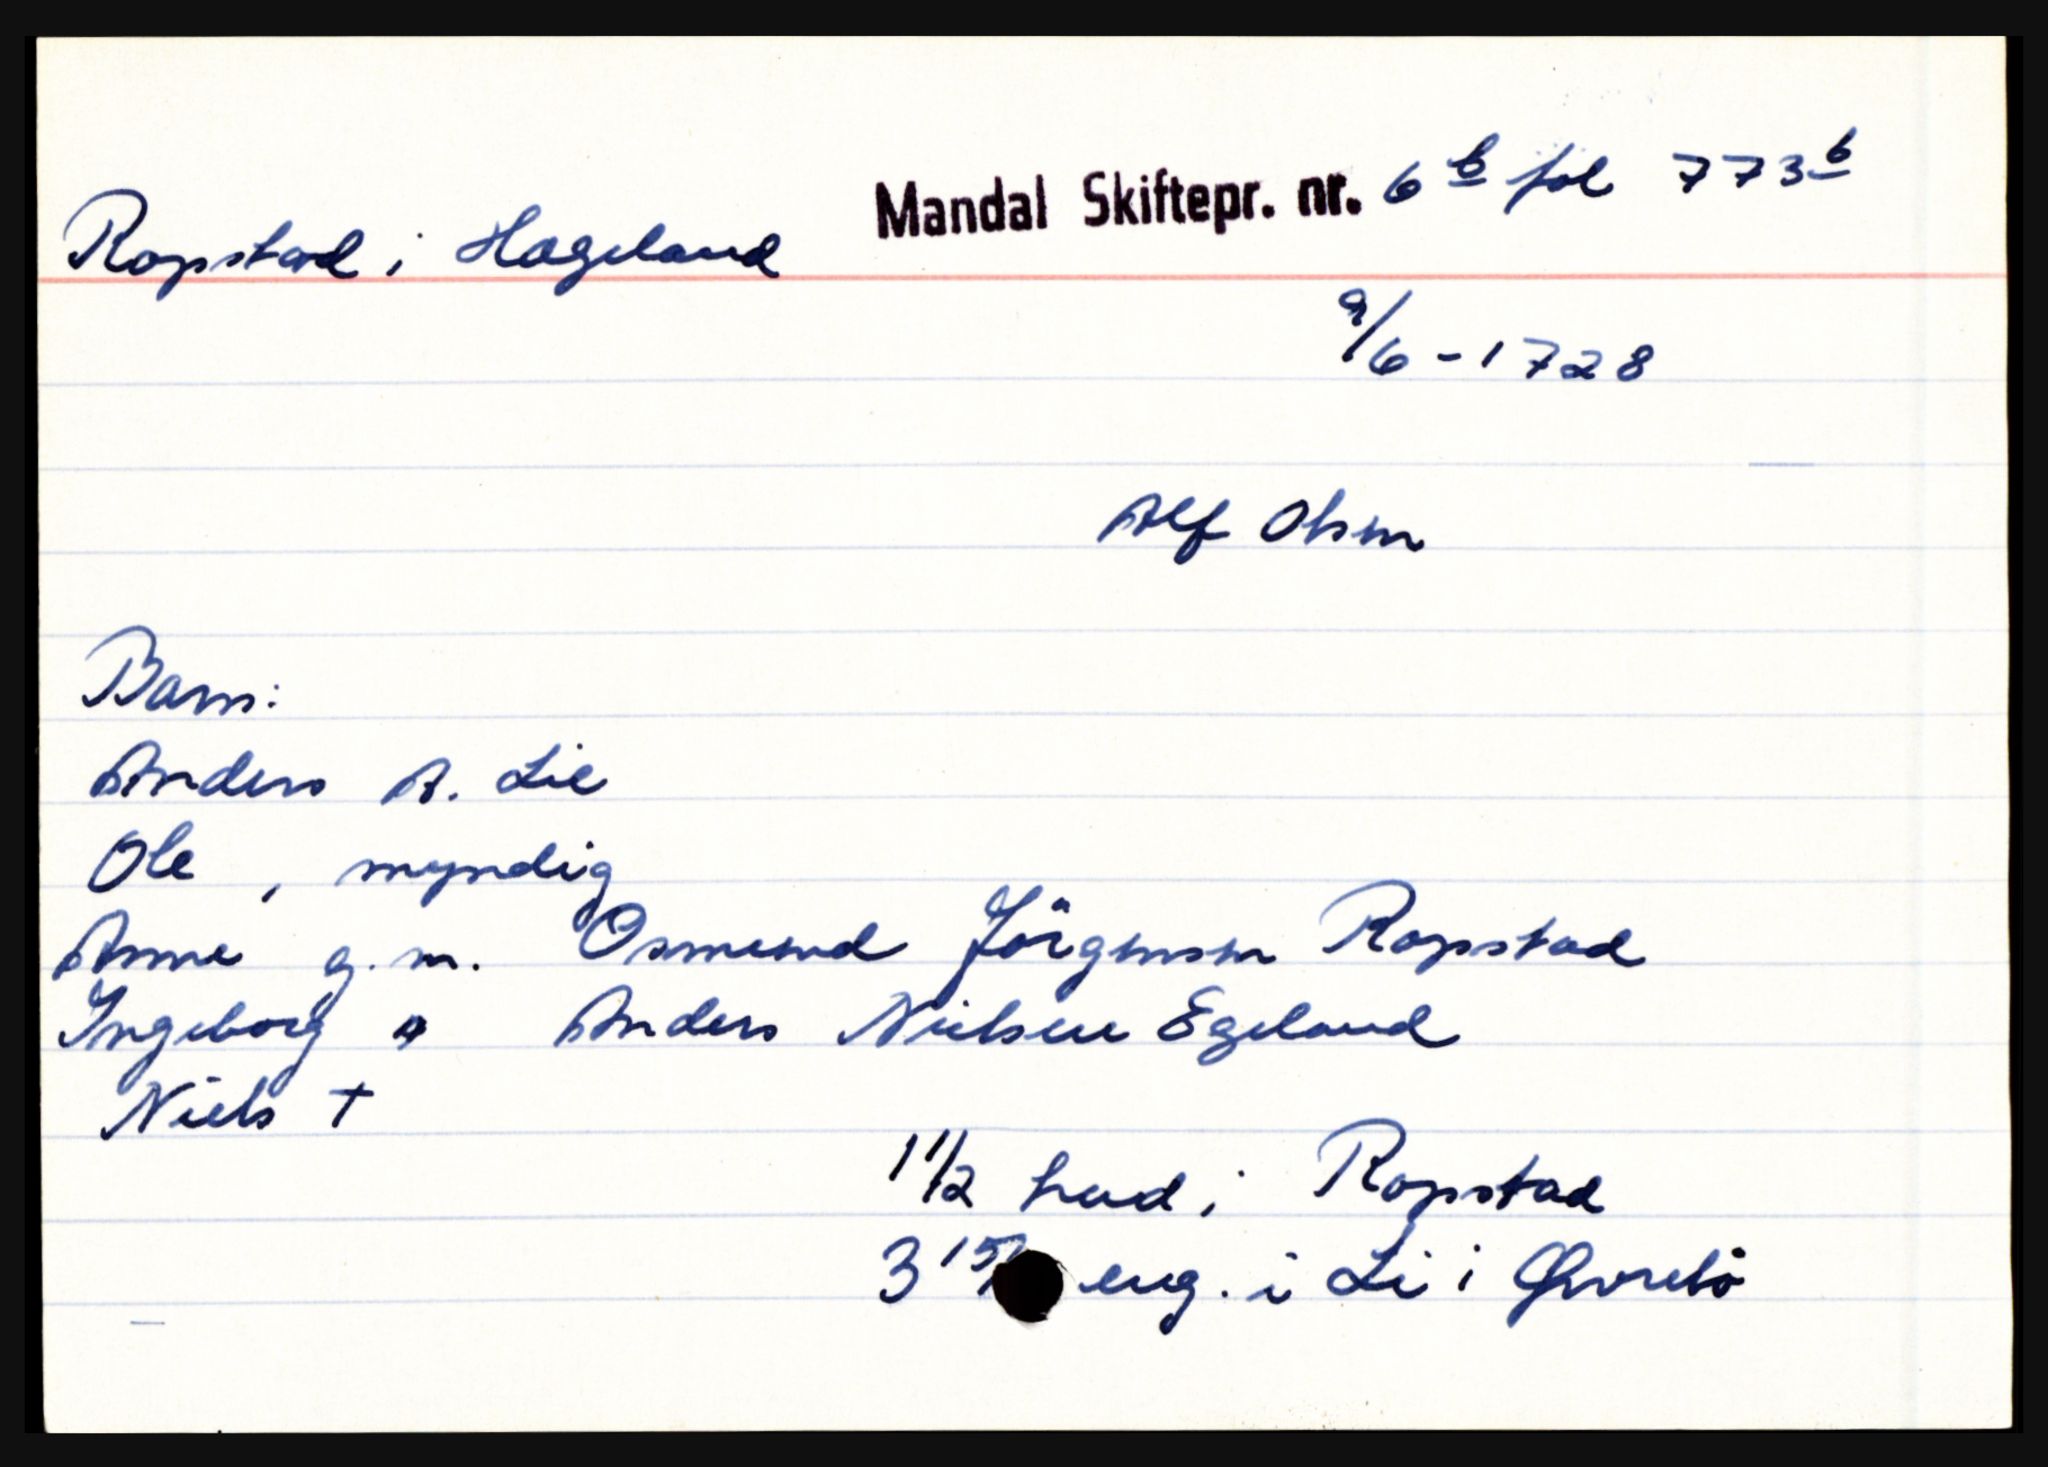 Mandal Skiftepr. nr. 6 b fol 773 b
Ropstad i Hageland
9/6 - 1728
Alf Olsen
Barn:
Anders A. Lie
Ole , myndig
Anne g.m. Osmund Jörgensen Ropstad
Ingeborg " Anders Nielsen Egeland
Niels †
1 1/2 hud i Ropstad
3 15/ eng. i Li i Øvrebö